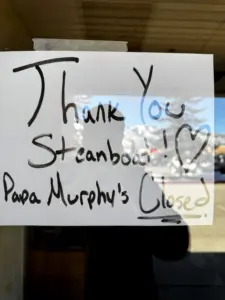 Thank You
Steamboat!
Papa Murphy's Closed